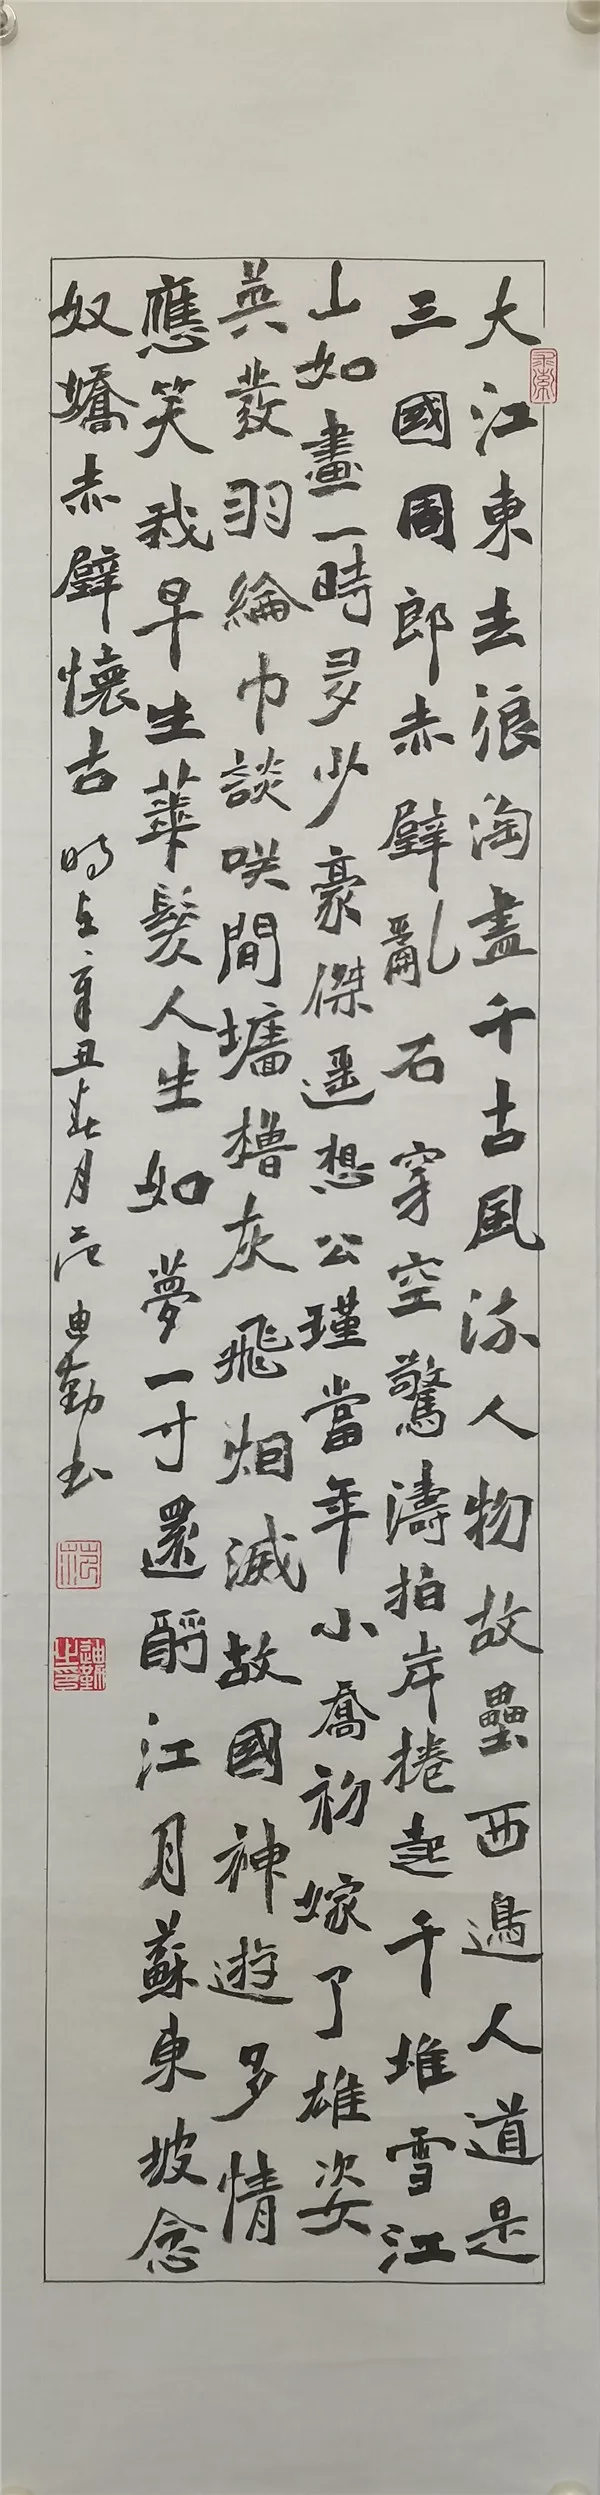 大江東去浪淘盡千古風流人物故壘西邊人道是
三國周郎赤壁亂石穿空驚濤拍岸捲起千堆雪江
山如畫一時多少豪傑遥想公瑾當年小喬初嫁了雄姿
英發羽綸巾談咲間墻櫓灰飛烟滅故國神遊多情
應笑我早生華髮人生如夢一寸還酹江月蘇東坡念
奴嬌赤壁懷古 時在辛丑春月范迪勤书
范
迪勤之印